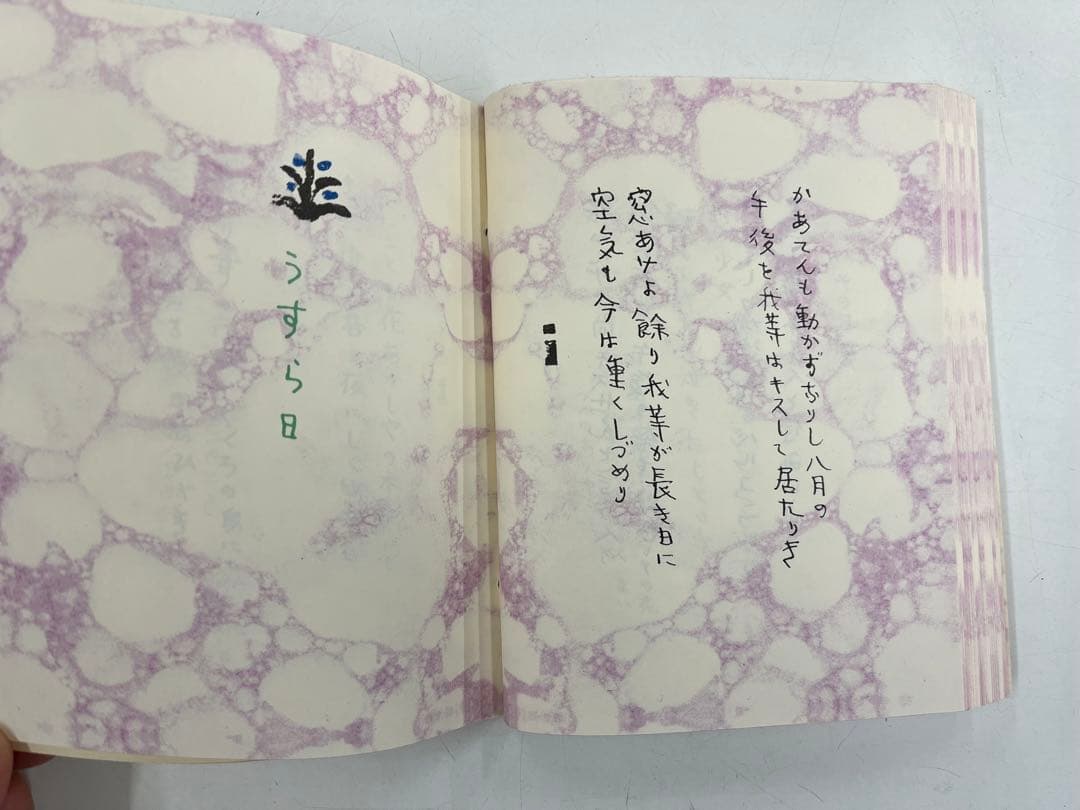 かあてんも動かずありし八月の
午後を我等はキスして居たりき
窓あけよ餘り我等が長き日に
空気も今は重くしづめり
うすら日